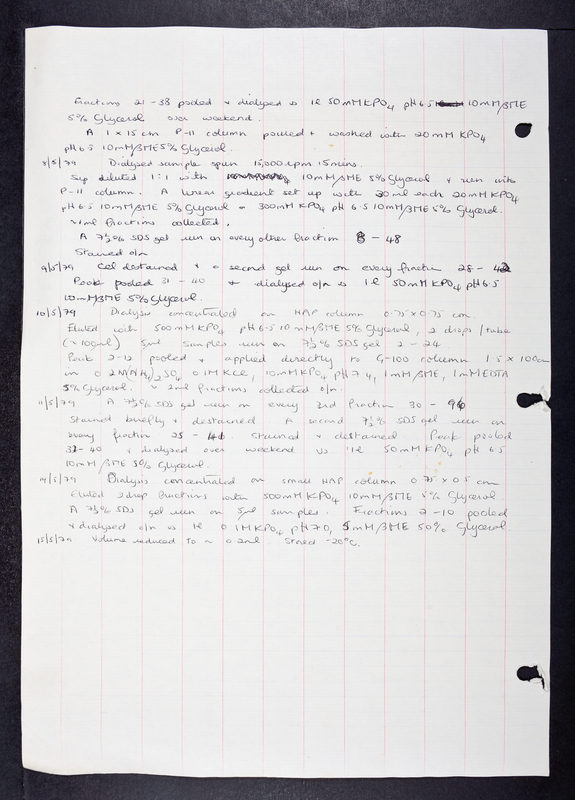 Fractions 21-38 pooled + dialysed vs 1l 50mM KPO4 pH 6.5 10mM βME
5% Glycerol over weekend.
A 1 x 15 cm P-11 column poured + washed with 20mM KPO4
pH 6.5 10mM βME 5% Glycerol.
8/5/79 Dialysed sample span 15,000 rpm 15mins.
Sup diluted 1:1 with 10mM βME 5% Glycerol + run onto
P-11 column. A linear gradient set up with 30ml each 20mM KPO4
pH 6.5 10mM βME 5% Glycerol → 300mM KPO4 pH 6.5 10mM βME 5% Glycerol.
~1ml fractions collected.
A 7½% SDS gel run on every other fraction 8 - 48
Stained o/n
9/5/79 Gel destained + a second gel run on every fraction 28 - 42
Peak pooled 31 - 40 + dialysed o/n vs 1l 50mM KPO4 pH 6.5
10mM βME 5% Glycerol.
10/5/79 Dialysis concentrated on HAP column 0.75 x 0.75 cm.
Eluted with 500mM KPO4 pH 6.5 10mM βME 5% Glycerol, 2 drops / tube
(~100µl) 5µl samples run on 7½% SDS gel 2 - 24
Peak 2-12 pooled + applied directly to G-100 column 1.5 x 100cm
in 0.2M (NH4)2SO4 0.1M KCl, 10mM KPO4 pH 7.4, 1mM βME, 1mM EDTA
5% Glycerol. ~ 2ml fractions collected o/n.
11/5/79 A 7½% SDS gel run on every 3rd fraction 30 - 96
Stained briefly + destained. A second 7½% SDS gel run on
every fraction 25 - 41. Stained + destained. Peak pooled
32-40 + dialysed over weekend vs 1l 50mM KPO4 pH 6.5
10mM βME 5% Glycerol.
14/5/79 Dialysis concentrated on small HAP column 0.75 x 0.5 cm
Eluted 2 drop fractions with 500mM KPO4 10mM βME 5% Glycerol
A 7½% SDS gel run on 5µl samples. Fractions 2-10 pooled
+ dialysed o/n vs 1l 0.1M KPO4 pH 7.0, 5mM βME 50% Glycerol.
15/5/79 Volume reduced to ~ 0.2ml Stored -20°C.